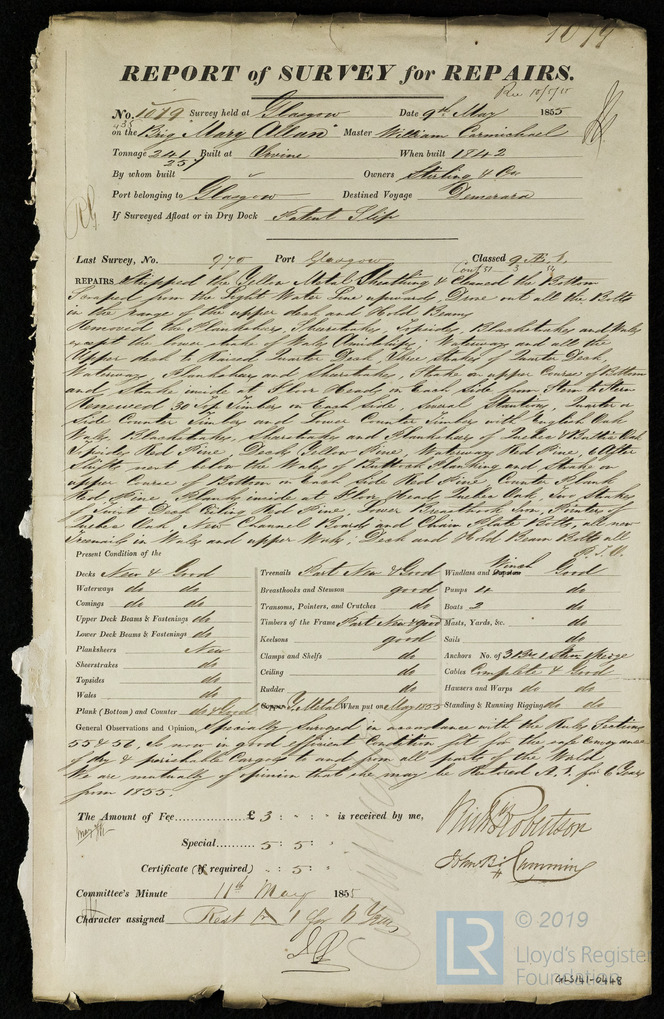 1079
REPORT of SURVEY for REPAIRS.
Rec 10/5/55
No. 1079 Survey held at Glasgow Date 9th May 1855
on the Brig "Mary Allan" Master William Carmichael
Tonnage 241 Built at Irvine When built 1842
257
By whom built Owners Stirling & Co
Port belonging to Glasgow Destined Voyage Demerara
If Surveyed Afloat or in Dry Dock Patent Slip
Last Survey, No. 970 Port Glasgow Classed 9 A. 1.
REPAIRS Stripped the Yellow Metal Sheathing & Cleaned the Bottom
Scraped from the Light Water Line upwards, Drove out all the Bolts
in the range of the upper deck and Hold Beams
Removed the Planksheers, Sheerstrakes, Topsides, Blackstrakes and Wales
except the lower strake of Wales Amidships; Waterways and all the
Upper deck to Raised Quarter Deck, Three Strakes of Quarter Deck,
Waterways, Planksheers and Sheerstrakes, Strake on upper Course of Bottom
and Strake inside at Floor Heads on Each Side from Stem to Stern
Renewed 30 Top Timbers on Each Side, Several Stantions, Quarter &
Side Counter Timbers and Lower Counter Timbers with English Oak
Wales, Blackstrakes, Sheerstrakes and Planksheers of Quebec & Oak
Topsides Red Pine, Deck Yellow Pine, Waterways Red Pine, 6 After
Shifts next below the Wales, Buttock Planking and Strake on
upper Course of Bottom on Each Side Red Pine, Counter Plank
Red Pine, Planks inside at Floor Heads Quebec Oak, Two Strakes
of Twixt Deck Ceiling Red Pine, Lower Breasthook Iron, Pointers of
Quebec Oak, New Channel Boards and Chain Plate Bolts, all new
Treenails in Wales and upper Works; Deck and Hold Beam Bolts all
P.T.O.
Present Condition of the
Decks New & Good
Waterways do do
Comings do do
Upper Deck Beams & Fastenings do
Lower Deck Beams & Fastenings do
Planksheers New
Sheerstrakes do
Topsides do
Wales do
Plank (Bottom) and Counter do & Good
Treenails Part New & Good
Breasthooks and Stemson good
Transoms, Pointers, and Crutches do
Timbers of the Frame Part New & Good
Keelsons good
Clamps and Shelfs do
Ceiling do
Rudder do
Copper Y. Metal When put on May 1855
Windlass and Capstan Winch Good
Pumps do
Boats 2 do
Masts, Yards, &c. do
Sails do
Anchors No. of 3 Br. 1 Strm 1 Kedge
Cables Complete & Good
Hawsers and Warps do do
Standing & Running Rigging do do
General Observations and Opinion, Specially Surveyed in accordance with the Rules Sections
55 & 56, is now in good efficient Condition fit for the safe conveyance
of dry & perishable Cargoes to and from all parts of the World
We are mutually of opinion that she may be Restored A. 1. for 6 Years
from 1855.
The Amount of Fee £ 3 : is received by me,
Special 5 : 5 :
Certificate (if required) : 5 :
Richd Robertson
John B. Cumming
Committee's Minute 11th May 1855
Character assigned Rest A 1 for 6 Years
LR
© 2019
Lloyd's Register
Foundation
GLS141-0448